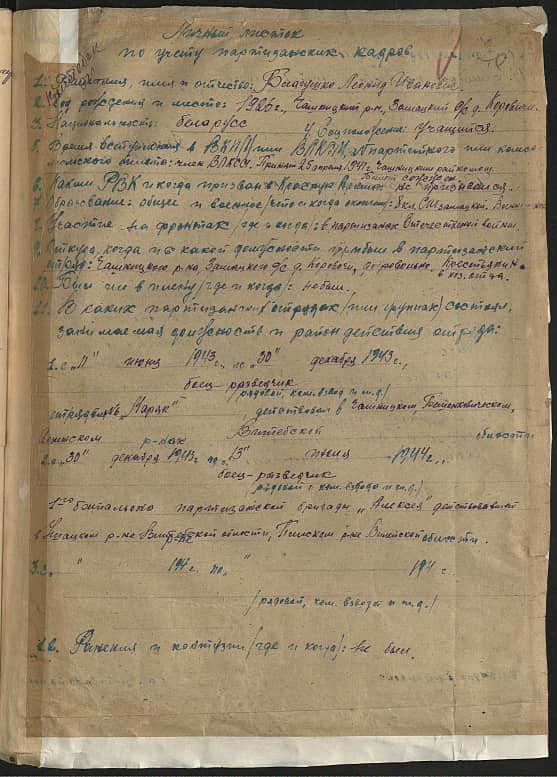 Личный листок
по учету партизанских кадров
1. Фамилия, имя и отчество: Леонид Иванович
2. Год рождения и место: 1926 г., Чашницкий р-н, Замацкий с/с д. Коровичи.
3. Национальность: беларусс 4. Соцположения: учащийся.
5. Время вступления в ВКП/б/ или ВЛКСМ, № партийного или комсо-
мольского билета: член ВЛКСМ. Принят 25 апреля 1941 г. Чашницким райкомом.
6. Каким РВК и когда призван в Красную Армию: не призывался.
7. Образование: общее и военное /что и когда окончил/: 8 кл. СШ
8. Участие на фронтах /где и когда/: в партизанах Отечественной войны.
9. Откуда, когда и с какой должности прибыл в партизанский
отряд: Чашницкого р-на Замацкого с/с д. Коровичи, добровольно.
10. Был ли в плену /где и когда/: не был.
11. В каких партизанских отрядах /или группах/ состоял,
занимаемая должность и район действия отряда:
1. с "11" июня 1943 г. по "30" декабря 1943 г.,
боец-разведчик
/рядовой, ком. взвод и т.д./
отряда "Маряк" действовал в Чашницком, Бешенковичском,
Сенненском р-нах Витебской области
2. с "30" декабря 1943 г. по "13" июня 1944 г.,
боец-разведчик
/рядовой, ком. взвода и т.д./
1-го батальона партизанской бригады "Алексея" действовавшей
в р-не Витебской области, р-не Вилейской области.
3. с " 194 г. по " 194 г.
/рядовой, ком. взвода и т.д./
12. Ранения и контузии /где и когда/: не был.